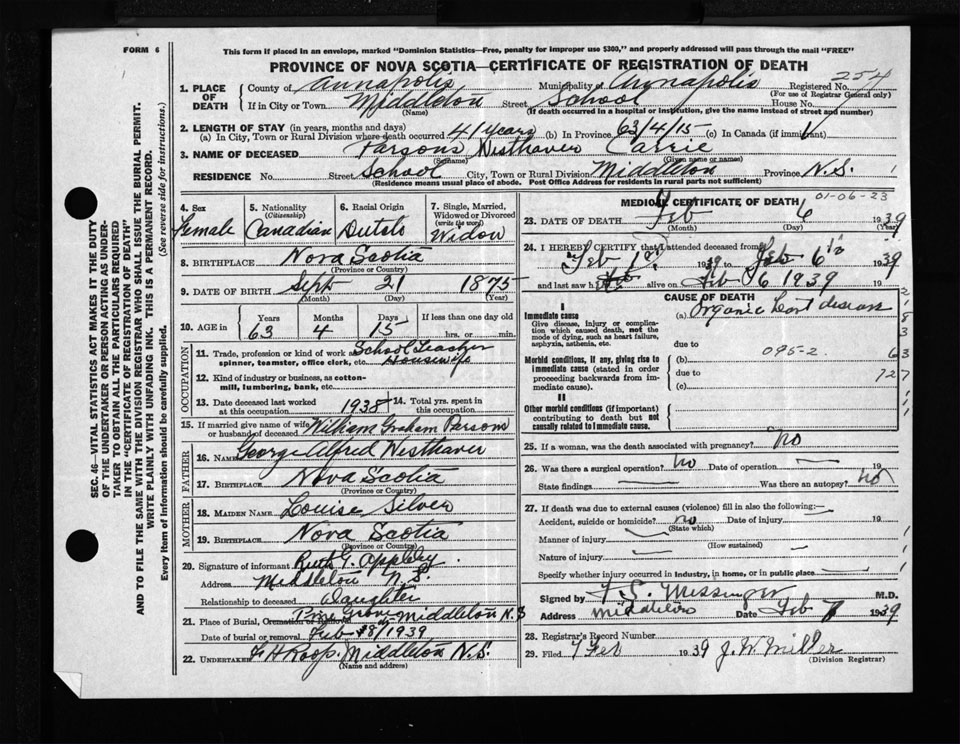 FORM 6
This form if placed in an envelope, marked "Dominion Statistics—Free, penalty for improper use $300," and properly addressed will pass through the mail "FREE"
PROVINCE OF NOVA SCOTIA—CERTIFICATE OF REGISTRATION OF DEATH
SEC. 46—VITAL STATISTICS ACT MAKES IT THE DUTY
OF THE UNDERTAKER OR PERSON ACTING AS UNDER-
TAKER TO OBTAIN ALL THE PARTICULARS REQUIRED
IN THE "CERTIFICATE OF REGISTRATION OF DEATH"
AND TO FILE THE SAME WITH THE DIVISION REGISTRAR WHO SHALL ISSUE THE BURIAL PERMIT.
WRITE PLAINLY WITH UNFADING INK. THIS IS A PERMANENT RECORD.
Every item of information should be carefully supplied. (See reverse side for instructions.)
1. PLACE OF DEATH
County of Annapolis Municipality of Annapolis Registered No. 254
(For use of Registrar General only)
If in City or Town Middleton Street School House No.
(Name) (If death occurred in a hospital or institution, give the name instead of street and number)
2. LENGTH OF STAY (in years, months and days)
(a) In City, Town or Rural Division where death occurred 41 years (b) In Province 63/4/15 (c) In Canada (if immigrant)
3. NAME OF DECEASED Parsons Wisthaver Carrie
(Surname) (Given name or names)
RESIDENCE No. Street School City, Town or Rural Division Middleton Province N.S.
(Residence means usual place of abode. Post Office Address for residents in rural parts not sufficient)
4. Sex Female
5. Nationality (Citizenship) Canadian
6. Racial Origin Dutch
7. Single, Married, Widowed or Divorced (write the word) Widow
8. BIRTHPLACE Nova Scotia
(Province or Country)
9. DATE OF BIRTH Sept 21 1875
(Month) (Day) (Year)
10. AGE in Years 63 Months 4 Days 15 If less than one day old hrs. or min.
OCCUPATION
11. Trade, profession or kind of work as spinner, teamster, office clerk, etc. School Teacher Housewife
12. Kind of industry or business, as cotton-mill, lumbering, bank, etc.
13. Date deceased last worked at this occupation 1938 14. Total yrs. spent in this occupation
15. If married give name of wife or husband of deceased William Graham Parsons
FATHER
16. NAME George Alfred Wisthaver
17. BIRTHPLACE Nova Scotia
(Province or Country)
MOTHER
18. MAIDEN NAME Louise Silver
19. BIRTHPLACE Nova Scotia
(Province or Country)
20. Signature of informant Ruth G. Appleby
Address Middleton N.S.
Relationship to deceased Daughter
21. Place of Burial, Cremation or Removal Pine Grove Middleton N.S
Date of burial or removal Feb 8/1939
22. UNDERTAKER F H Roop. Middleton N.S.
(Name and address)
MEDICAL CERTIFICATE OF DEATH 01-06-23
23. DATE OF DEATH Feb 6 1939
(Month) (Day) (Year)
24. I HEREBY CERTIFY that I attended deceased from
Feb 1st 1939 to Feb 6th 1939
and last saw h alive on Feb 6 1939
CAUSE OF DEATH
I
Immediate cause
Give disease, injury or complication which caused death, not the mode of dying, such as heart failure, asphyxia, asthenia, etc.
(a) Organic heart disease
due to
Morbid conditions, if any, giving rise to immediate cause (stated in order proceeding backwards from immediate cause).
(b) 095-2
due to
(c)
II
Other morbid conditions (if important) contributing to death but not causally related to Immediate cause.
63
727
25. If a woman, was the death associated with pregnancy? no
26. Was there a surgical operation? no Date of operation 19
State findings Was there an autopsy? no
27. If death was due to external causes (violence) fill in also the following:—
Accident, suicide or homicide? no Date of injury 19
(State which)
Manner of injury
(How sustained)
Nature of injury
Specify whether injury occurred in industry, in home, or in public place
Signed by F. S. Messenger M.D.
Address Middleton Date Feb 7 1939
28. Registrar's Record Number
29. Filed 7 Feb 1939 J. W. Miller
(Division Registrar)